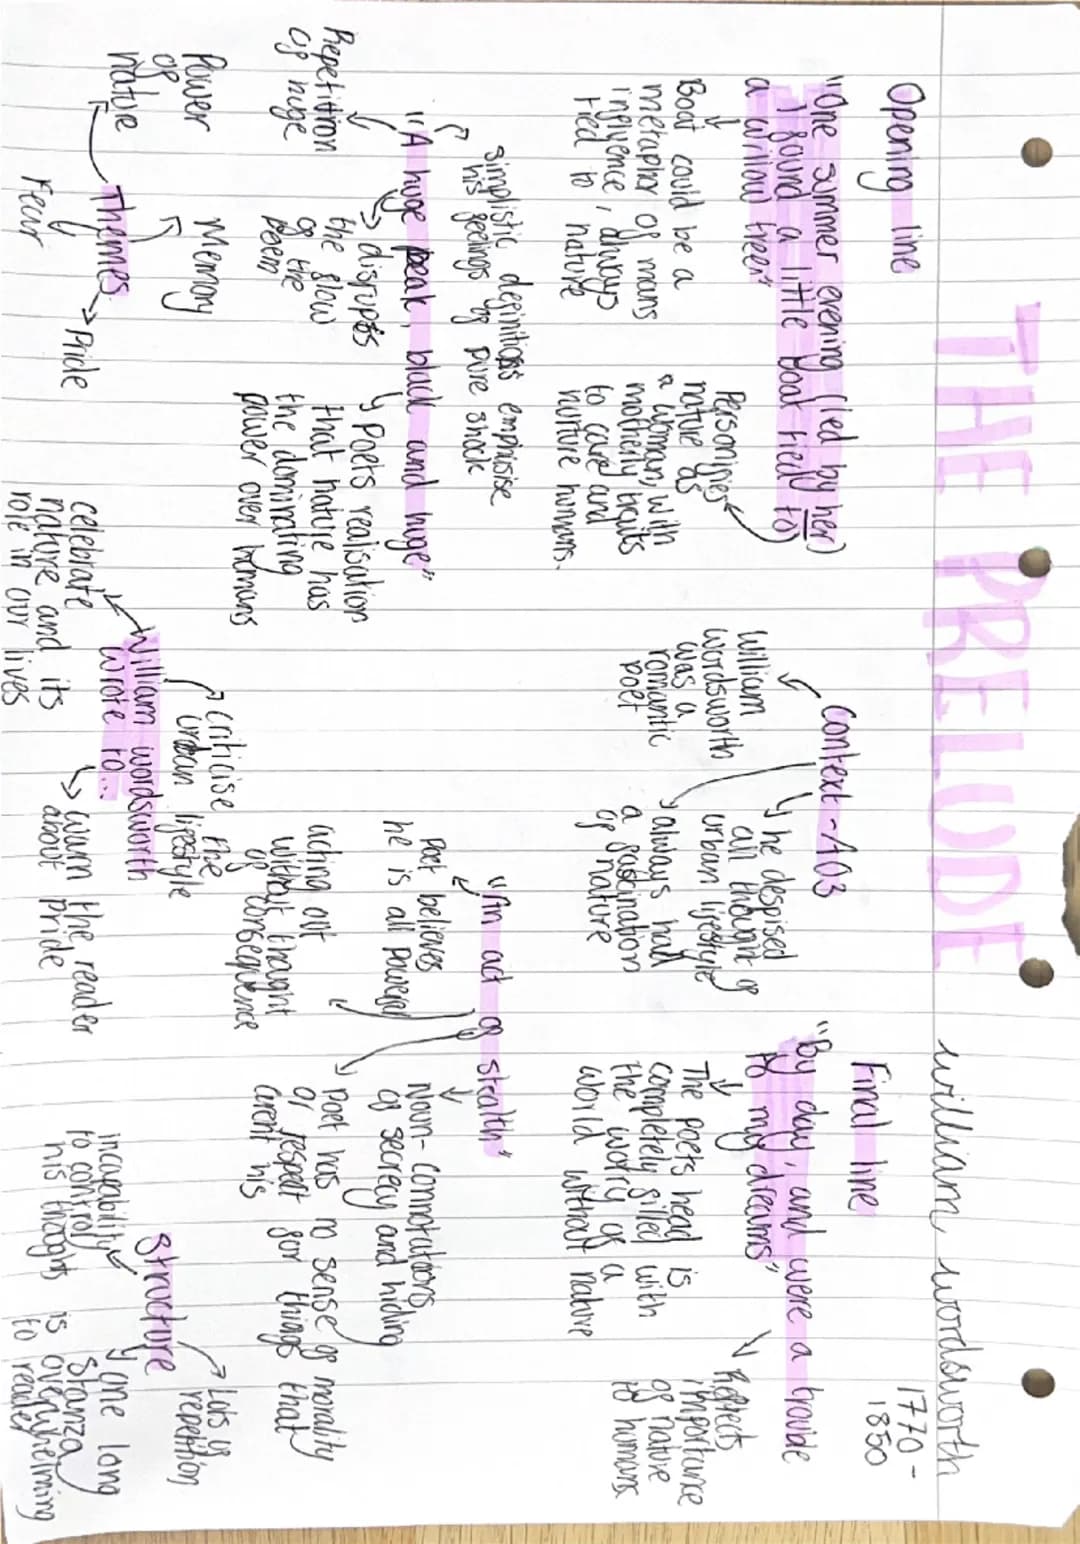 THE PRELUDE
william wordsworth
1770 -
1850
Opening line
"One summer evening (led by her)
I found a little boat tied to
a willow tree"
Boat could be a
metaphor of mans
influence, always
tied to nature
Personifies
natue as
a woman, with
motherly traits
to care and
nurture humans.
Context - A03
William
wordsworth
was a
romantic
poet
he despised
an thought of
urban lifestyle
always had
a fascination
of nature
Final line
"By day, and were a trouble
to my dreams"
The poets head is
completely filled with
the worry of a
world without nature
Reflects
importance
of nature
to humans
simplistic definitions emphisise
his feelings of pure shock
"A huge peak, black and huge"
Repetition
of huge
disrupts
the flow
of the
poem
Poets realisation
that nature has
the dominating
power over humans
"An act of stealth"
Poet believes
he is all powerful
aching out
without thought
of consequence
Noun - connotations
of secrecy and hiding
Poet has no sense of morality
or respect for things that
arent his
Themes
Power
of
nature
Memory
Fear
Pride
William wordsworth
wrote to...
criticise the
urban lifestyle
celebrate
nature and its
role in our lives
warn the reader
about pride
Structure
Lots of
repetition
incapability
to control
his thoughts
one long
stanza
is overwhelming
to reader